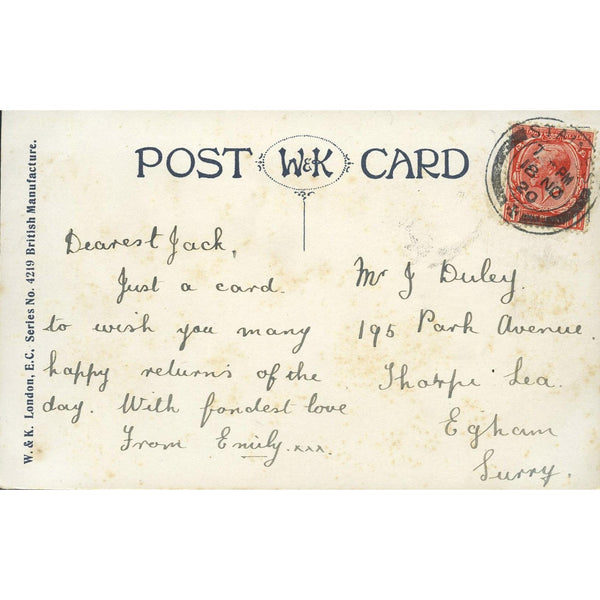 POST W&K CARD
W. & K. London, E.C. Series No. 4219 British Manufacture.
Dearest Jack,
Just a card.
to wish you many
happy returns of the
day. With fondest love
From Emily. xxx.
Mr J Duley.
195 Park Avenue
Thorpe Lea.
Egham
Surry.
7 PM
18 NO
20